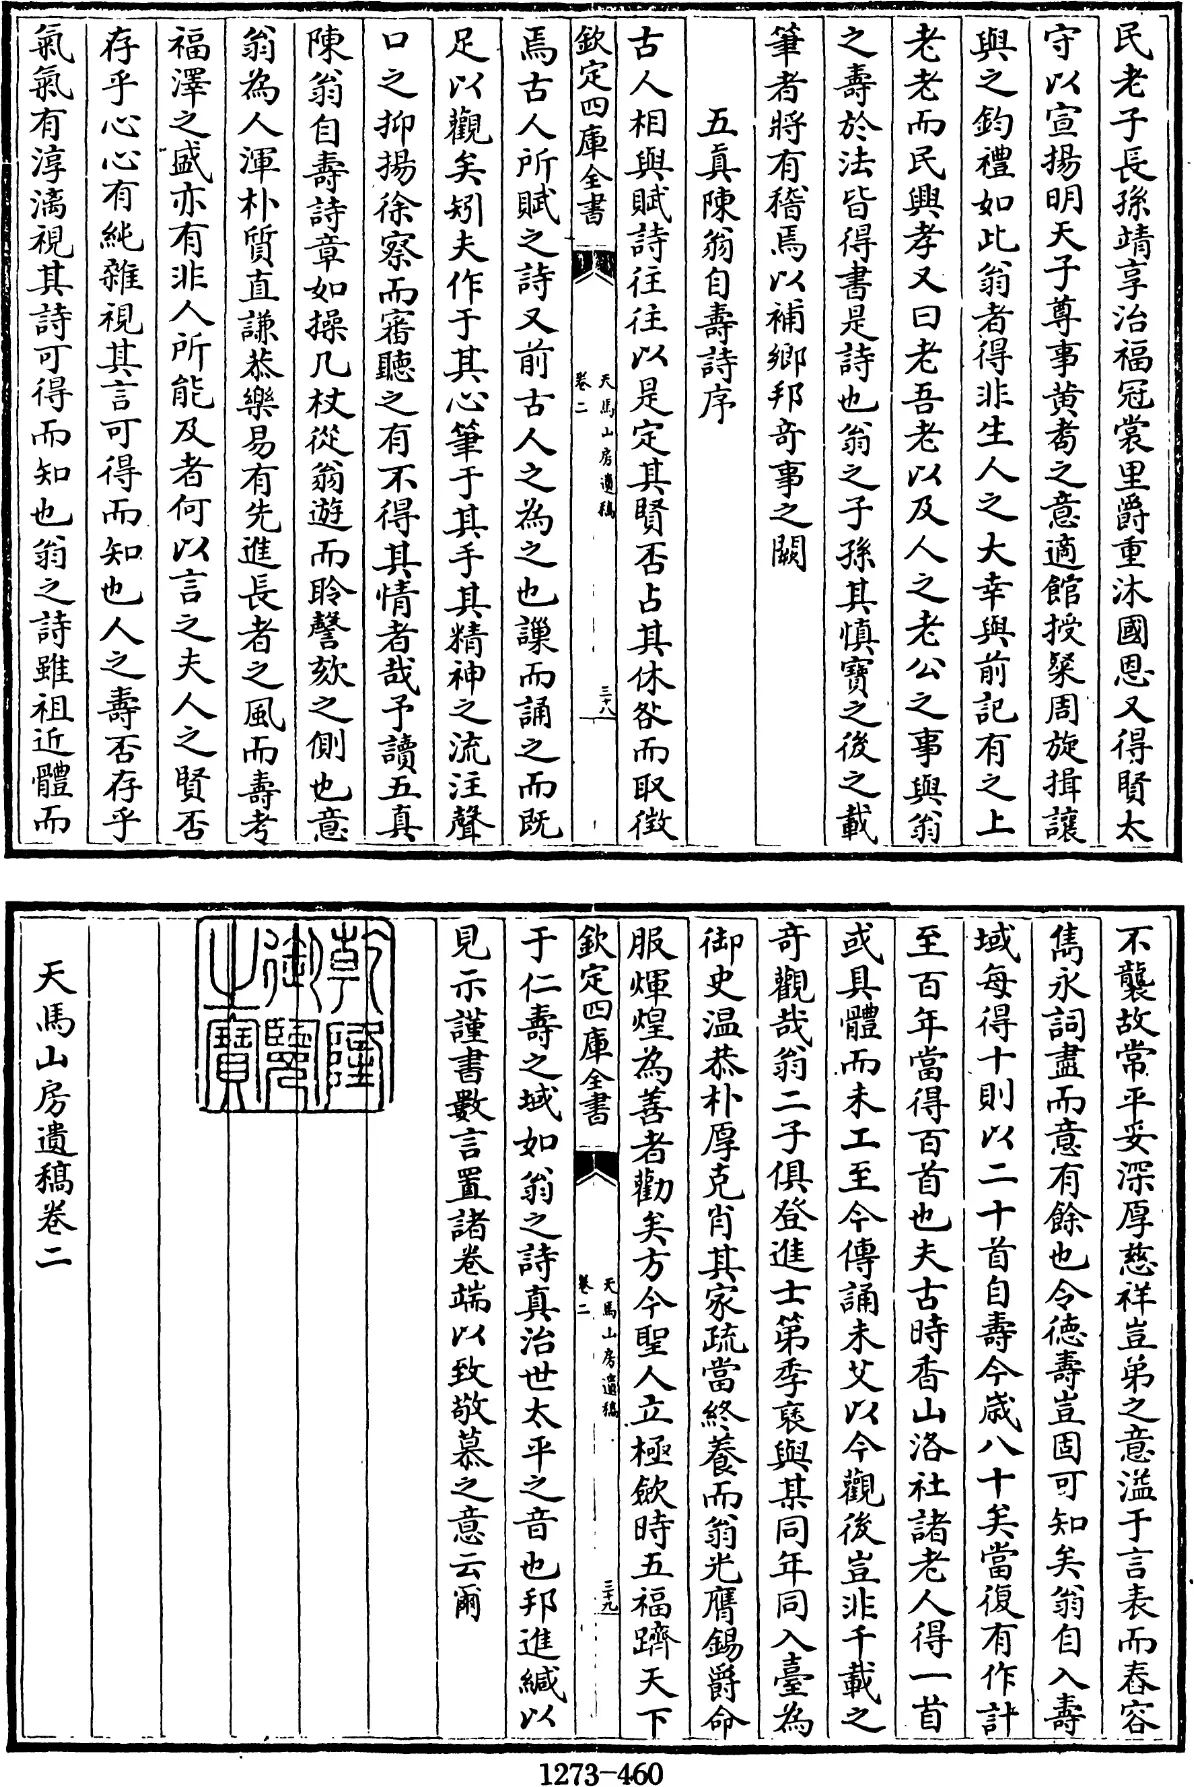 民老子長孫靖享治福冠裳里爵重沐國恩又得賢太
守以宣揚明天子尊事黄耉之意適館授粲周旋揖讓
與之鈞禮如此翁者得非生人之大幸與前記有之上
老老而民興孝又曰老吾老以及人之老公之事與翁
之壽於法皆得書是詩也翁之子孫其慎寶之後之載
筆者將有稽焉以補鄉邦竒事之闕
五真陳翁自壽詩序
古人相與賦詩往往以是定其賢否占其休咎而取徴
欽定四庫全書
天馬山房遺稿
卷二
三十八
焉古人所賦之詩又前古人之為之也譔而誦之而既
足以觀矣矧夫作于其心筆于其手其精神之流注聲
口之抑揚徐察而審聽之有不得其情者哉予讀五真
陳翁自壽詩章如操几杖從翁遊而聆謦欬之側也意
翁為人渾朴質直謙恭樂易有先進長者之風而壽考
福澤之盛亦有非人所能及者何以言之夫人之賢否
存乎心心有純雜視其言可得而知也人之壽否存乎
氣氣有淳漓視其詩可得而知也翁之詩雖祖近體而
不襲故常平妥深厚慈祥豈弟之意溢于言表而舂容
雋永詞盡而意有餘也令徳壽豈固可知矣翁自入壽
域每得十則以二十首自壽今歳八十矣當復有作計
至百年當得百首也夫古時香山洛社諸老人得一首
或具體而未工至今傳誦未艾以今觀後豈非千載之
竒觀哉翁二子俱登進士第季袠與某同年同入臺為
御史温恭朴厚克肖其家疏當終養而翁光膺錫爵命
服煇煌為善者勸矣方今聖人立極歛時五福躋天下
欽定四庫全書
天馬山房遺稿
卷二
三十九
于仁壽之域如翁之詩真治世太平之音也邦進緘以
見示謹書數言置諸卷端以致敬慕之意云爾
乾隆
御覽
之寶
天馬山房遺稿卷二
1273-460